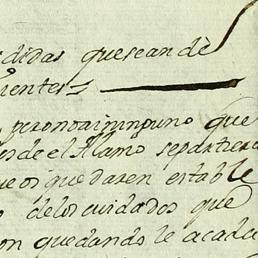 didas que sean dê
ientes =
, pero no ai ninguno que
esde el Ramo se partiera
ue os quedaren estable
o delos cuidados que
on quedando le acada